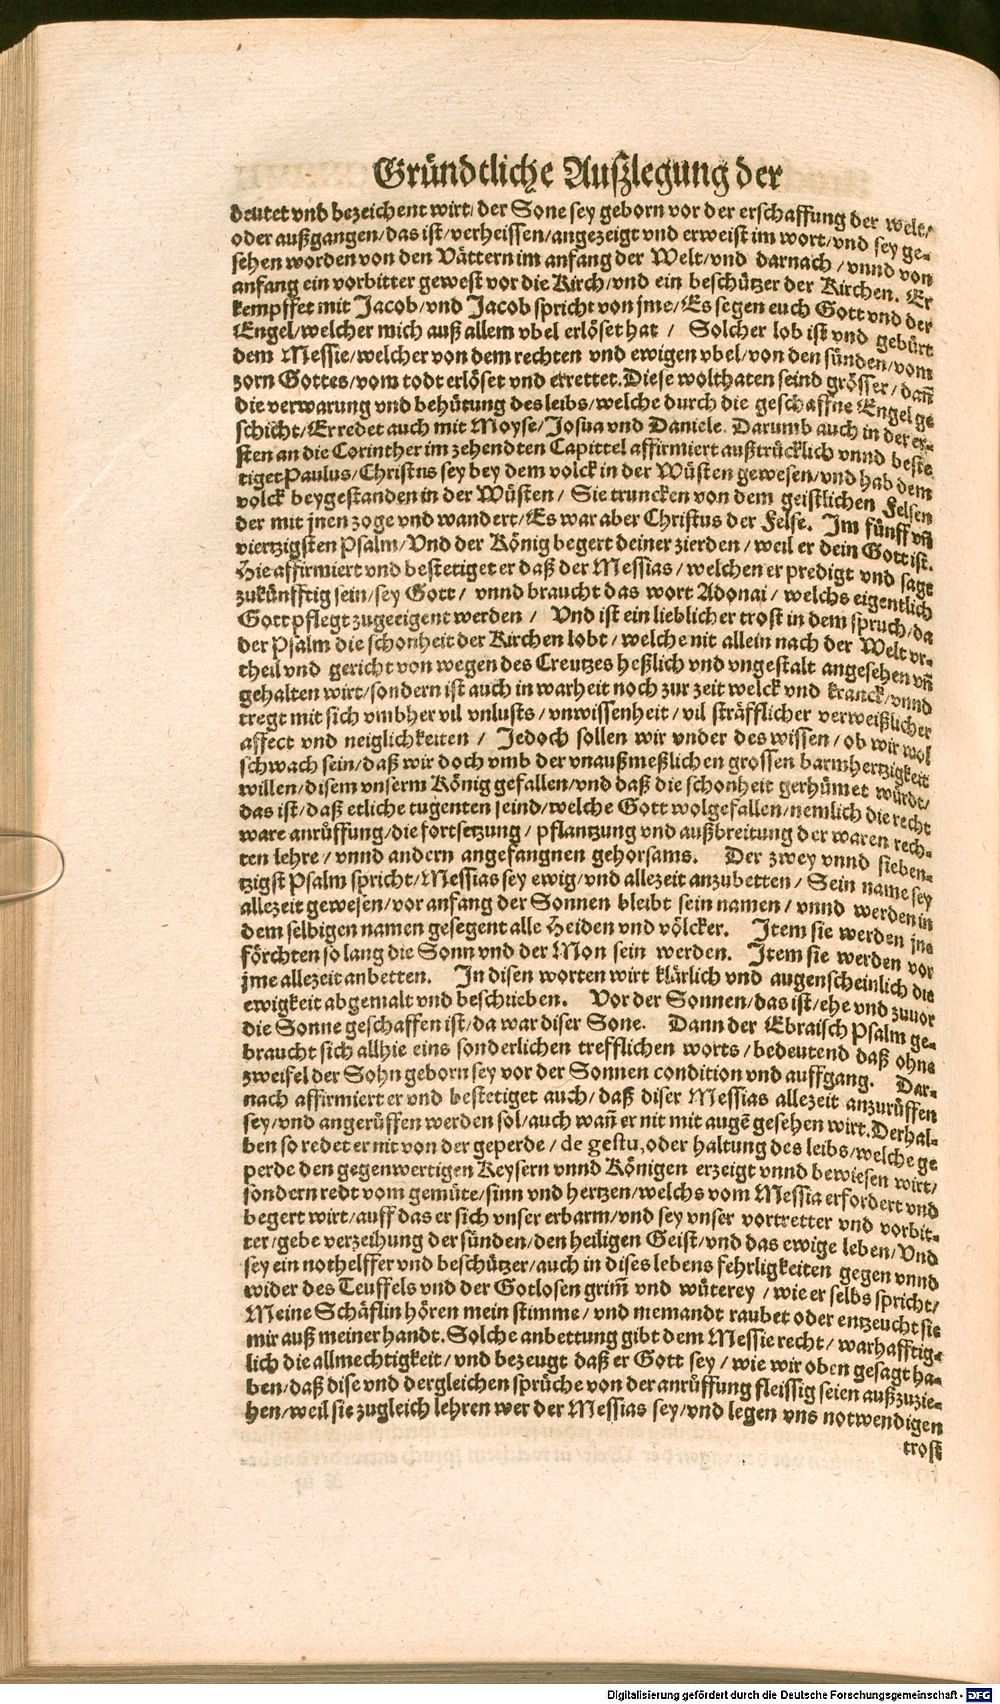 Gründtliche Außlegung der
deutet vnd bezeichent wirt/ der Sone sey geborn vor der erschaffung der welt/
oder außgangen/das ist/verheissen/angezeigt vnd erweist im wort/vnd sey ge-
sehen worden von den Vättern im anfang der Welt/vnd darnach/vnnd von
anfang ein vorbitter gewest vor die Kirch/vnd ein beschützer der Kirchen. Er
kempffet mit Jacob/vnd Jacob spricht von jme/Es segen euch Gott vnd der
Engel/welcher mich auß allem vbel erlöset hat / Solcher lob ist vnd gebürt
dem Messie/welcher von dem rechten vnd ewigen vbel/von den sünden/vom
zorn Gottes/vom todt erlöset vnd errettet. Diese wolthaten seind grösser/dañ
die verwarung vnd behütung des leibs/welche durch die geschaffne Engel ge
schicht/Er redet auch mit Moyse/Josua vnd Daniele. Darumb auch in der er-
sten an die Corinther im zehendten Capittel affirmiert außtrücklich vnnd beste
tiget Paulus/Christus sey bey dem volck in der Wüsten gewesen/vnd hab dem
volck beygestanden in der Wüsten / Sie truncken von dem geistlichen Felsen
der mit jnen zoge vnd wandert/Es war aber Christus der Felse. Im fünff vñ
viertzigsten Psalm/Vnd der König begert deiner zierden / weil er dein Gott ist.
Hie affirmiert vnd bestetiget er daß der Messias / welchen er predigt vnd sagt
zukünfftig sein/sey Gott / vnnd braucht das wort Adonai / welchs eigentlich
Gott pflegt zugeeigent werden / Vnd ist ein lieblicher trost in dem spruch/da
der Psalm die schonheit der Kirchen lobt / welche nit allein nach der Welt vr-
theil vnd gericht von wegen des Creutzes heßlich vnd vngestalt angesehen vñ
gehalten wirt/sondern ist auch in warheit noch zur zeit welck vnd kranck/vnnd
tregt mit sich vmbher vil vnlusts / vnwissenheit / vil sträfflicher verweißlicher
affect vnd neiglichkeiten / Jedoch sollen wir vnder des wissen / ob wir wol
schwach sein/daß wir doch vmb der vnaußmeßlichen grossen barmhertzigkeit
willen/disem vnserm König gefallen/vnd daß die schonheit gerhümet würdt/
das ist/daß etliche tugenten seind/welche Gott wolgefallen/nemlich die recht
ware anrüffung/die fortsetzung / pflantzung vnd außbreitung der waren rech-
ten lehre / vnnd andern angefangnen gehorsams. Der zwey vnnd sieben-
tzigst Psalm spricht/Messias sey ewig/vnd allezeit anzubetten / Sein name sey
allezeit gewesen/vor anfang der Sonnen bleibt sein namen / vnnd werden in
dem selbigen namen gesegent alle Heiden vnd völcker. Item sie werden jne
förchten so lang die Sonn vnd der Mon sein werden. Item sie werden vor
jme allezeit anbetten. In disen worten wirt klärlich vnd augenscheinlich die
ewigkeit abgemalt vnd beschrieben. Vor der Sonnen/das ist/ehe vnd zuuor
die Sonne geschaffen ist/da war diser Sone. Dann der Ebraisch Psalm ge-
braucht sich allhie eins sonderlichen trefflichen worts / bedeutend daß ohne
zweifel der Sohn geborn sey vor der Sonnen condition vnd auffgang. Dar-
nach affirmiert er vnd bestetiget auch/daß diser Messias allezeit anzurüffen
sey/vnd angerüffen werden sol/auch wañ er nit mit augẽ gesehen wirt. Derhal-
ben so redet er nit von der geperde/ de gestu, oder haltung des leibs/welche ge
perde den gegenwertigen Keysern vnnd Königen erzeigt vnnd bewiesen wirt/
sondern redt vom gemüte/sinn vnd hertzen/welchs vom Messia erfordert vnd
begert wirt/auff das er sich vnser erbarm/vnd sey vnser vortretter vnd vorbit-
ter/gebe verzeihung der sünden/den heiligen Geist/vnd das ewige leben/Vnd
sey ein nothelffer vnd beschützer/auch in dises lebens fehrligkeiten gegen vnnd
wider des Teuffels vnd der Gotlosen grim̃ vnd wüterey / wie er selbs spricht/
Meine Schäflin hören mein stimme / vnd niemandt raubet oder entzeucht sie
mir auß meiner handt. Solche anbettung gibt dem Messie recht / warhafftig-
lich die allmechtigkeit/vnd bezeugt daß er Gott sey / wie wir oben gesagt ha-
ben/daß dise vnd dergleichen sprüche von der anrüffung fleissig seien außzuzie-
hen/weil sie zugleich lehren wer der Messias sey/vnd legen vns notwendigen
trost
Digitalisierung gefördert durch die Deutsche Forschungsgemeinschaft - DFG